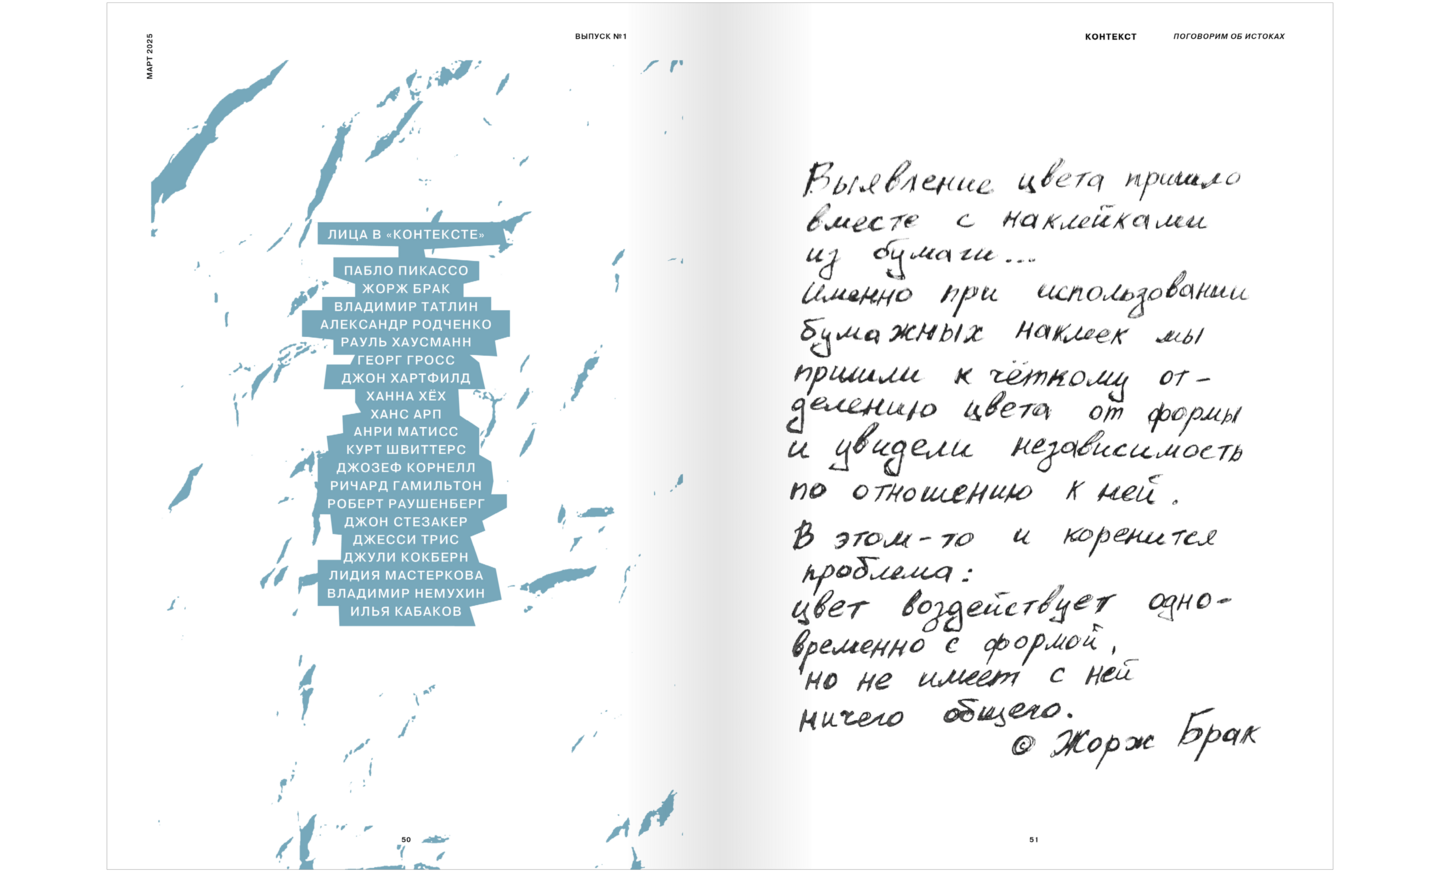 МАРТ 2025
ВЫПУСК №1
ЛИЦА В «КОНТЕКСТЕ»
ПАБЛО ПИКАССО
ЖОРЖ БРАК
ВЛАДИМИР ТАТЛИН
АЛЕКСАНДР РОДЧЕНКО
РАУЛЬ ХАУСМАНН
ГЕОРГ ГРОСС
ДЖОН ХАРТФИЛД
ХАННА ХЁХ
ХАНС АРП
АНРИ МАТИСС
КУРТ ШВИТТЕРС
ДЖОЗЕФ КОРНЕЛЛ
РИЧАРД ГАМИЛЬТОН
РОБЕРТ РАУШЕНБЕРГ
ДЖОН СТЕЗАКЕР
ДЖЕССИ ТРИС
ДЖУЛИ КОКБЕРН
ЛИДИЯ МАСТЕРКОВА
ВЛАДИМИР НЕМУХИН
ИЛЬЯ КАБАКОВ
50
КОНТЕКСТ
ПОГОВОРИМ ОБ ИСТОКАХ
Выявление цвета пришло
вместе с наклейками
из бумаги...
Именно при использовании
бумажных наклеек мы
пришли к чёткому от-
делению цвета от формы
и увидели независимость
по отношению к ней.
В этом-то и коренится
проблема:
цвет воздействует одно-
временно с формой,
но не имеет с ней
ничего общего.
© Жорж Брак
51